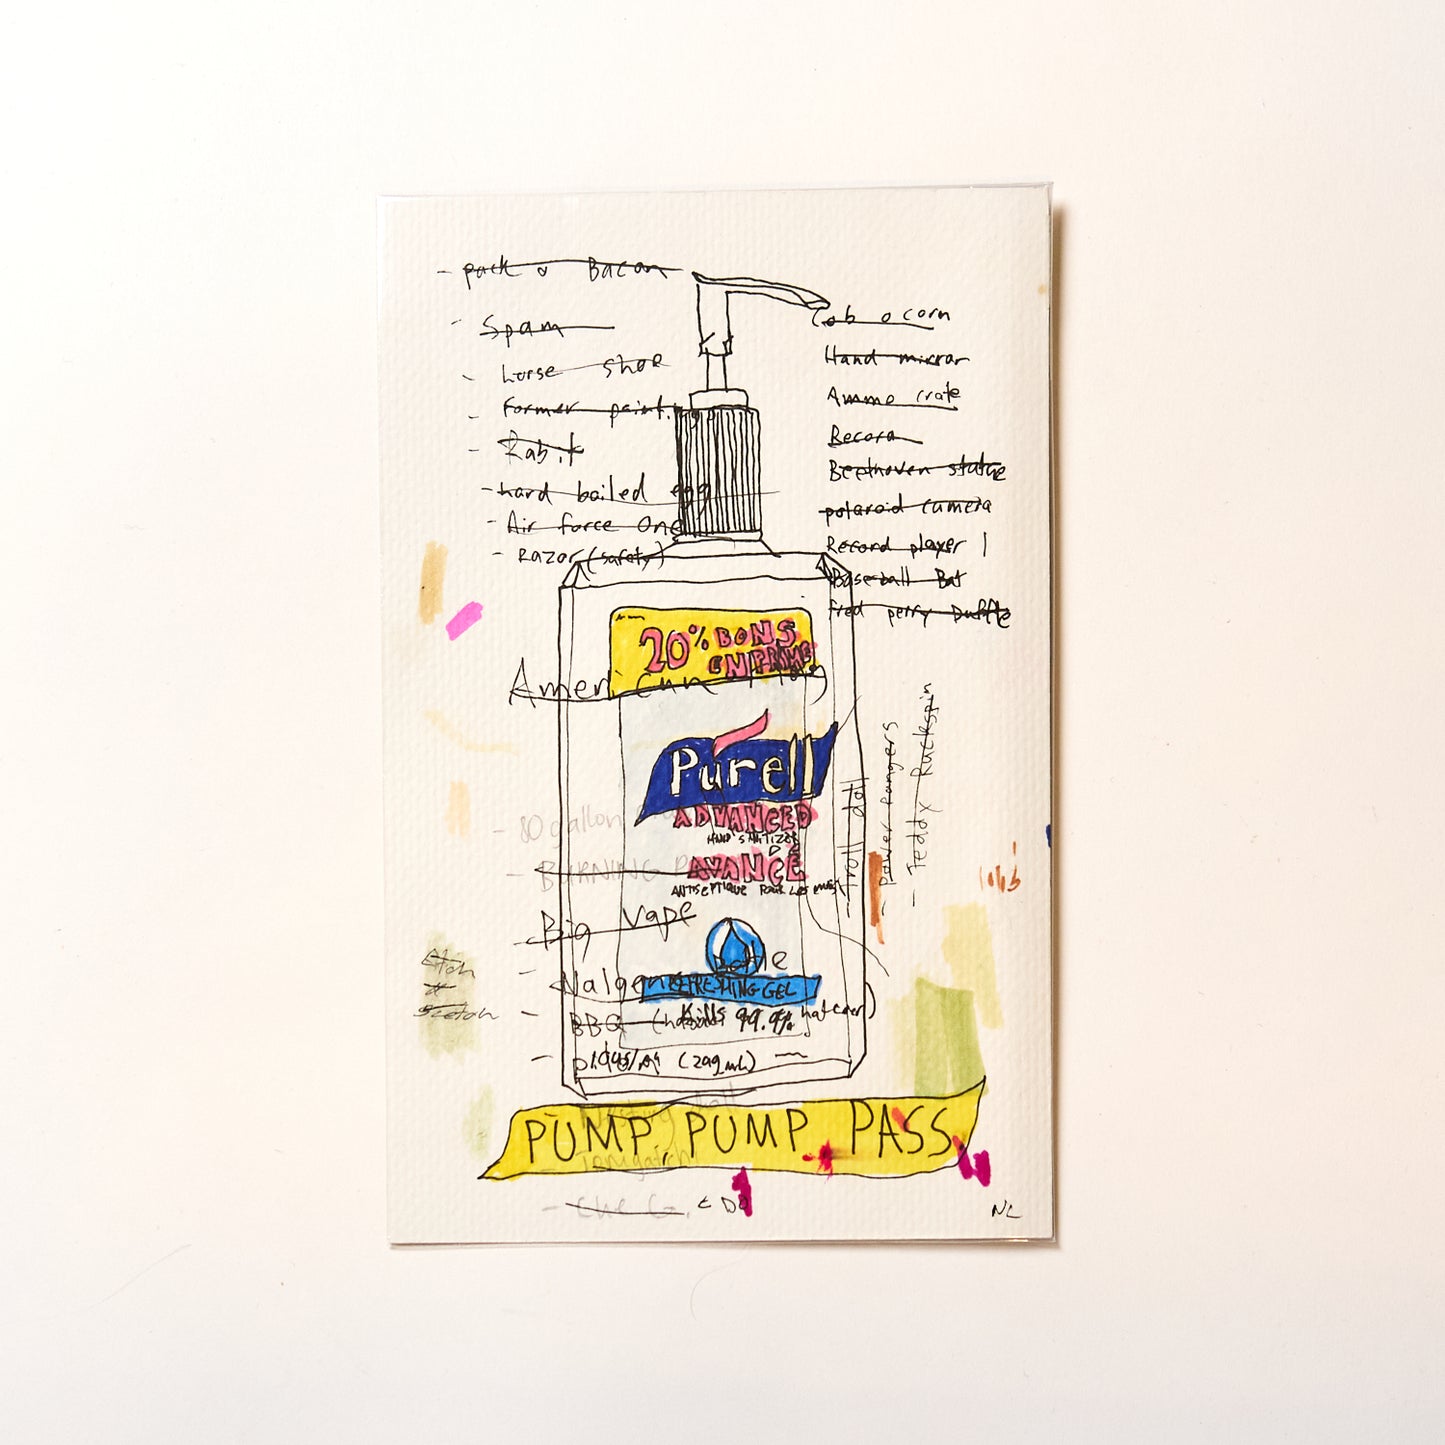 - pack o Bacon
- Spam
- horse shoe
- Former paint.
- Rabit
- hard boiled egg
- Air force One
- Razor (safety)
Cob o corn
Hand mirror
Ammo crate
Becora
Beethoven statue
polaroid camera
Record player
Baseball Bat
fred perry Duffle
20% BONS
EN PRIME
American
Purell
ADVANCED
HAND SANITIZER
AVANCÉ
ANTISEPTIQUE POUR LES MAINS
- troll doll
- Power Rangers
- Teddy Ruckspin
- 80 gallon
- BURNING
- Big Vape
- Nalgene Bottle
REFRESHING GEL
- BBQ
Kills 99.9%
Etch
A
Sketch
PUMP, PUMP PASS
- Tamigatch
- Che G.
NL